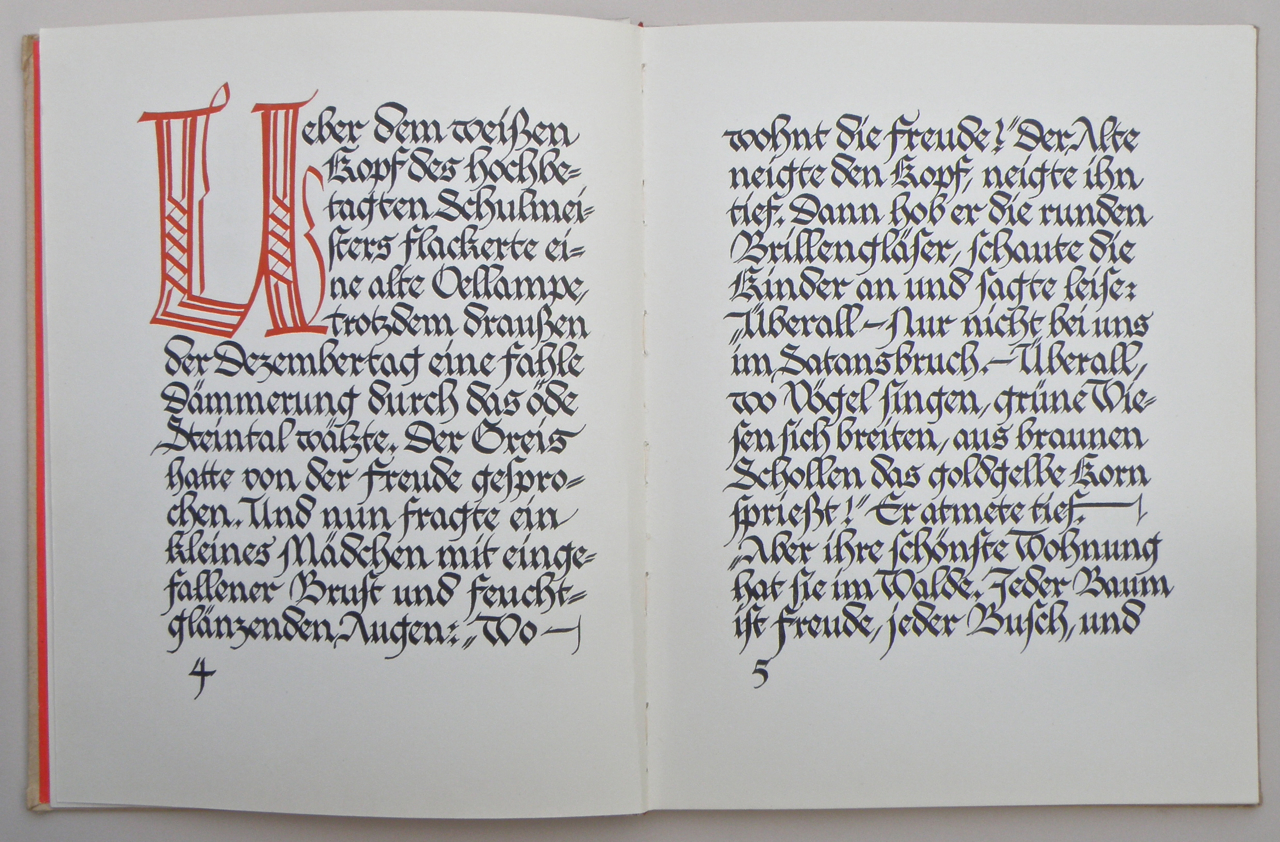 Ueber dem weißen
Kopf des hochbe=
tagten Schulmei=
sters flackerte ei=
ne alte Oellampe,
trotzdem draußen
der Dezembertag eine fahle
Dämmerung durch das öde
Steintal wälzte. Der Greis
hatte von der Freude gespro=
chen. Und nun fragte ein
kleines Mädchen mit einge=
fallener Brust und feucht=
glänzenden Augen: „Wo —
4
wohnt die Freude?" Der Alte
neigte den Kopf, neigte ihn
tief. Dann hob er die runden
Brillengläser, schaute die
Kinder an und sagte leise:
„Überall — Nur nicht bei uns
im Satansbruch. — Überall,
wo Vögel singen, grüne Wie=
sen sich breiten, aus braunen
Schollen das goldgelbe Korn
sprießt!" Er atmete tief. —
„Aber ihre schönste Wohnung
hat sie im Walde. Jeder Baum
ist Freude, jeder Busch, und
5